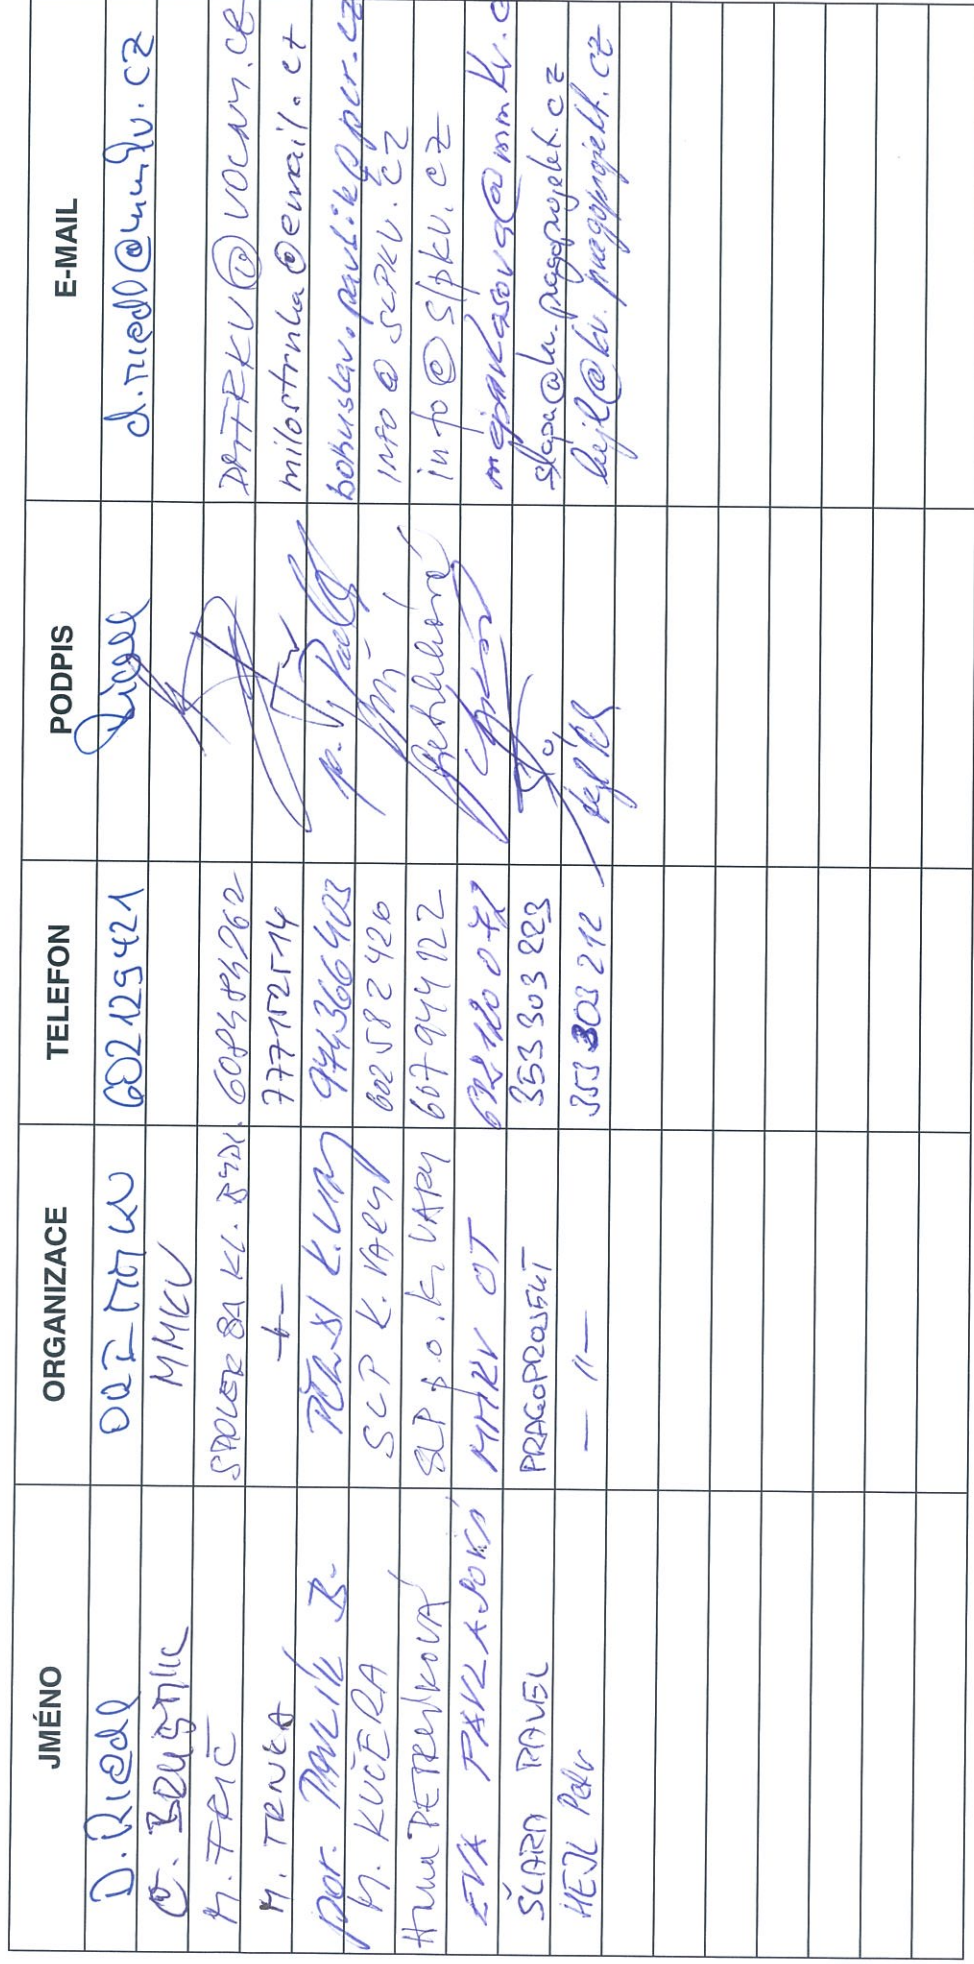 JMÉNO ORGANIZACE TELEFON PODPIS E-MAIL
D. Riedl 602129421 Riedl d.riedl@mmkv.cz
MMKV
M. TRIČ SPOLEK ZA KL. BYDL. 608484262 DATRKV@VOLNY.CZ
M. TRNKA -"- 777152514 milostrnka@email.cz
por. PAVLÍK B. K.VARY 974366403 bohuslav.pavlik@pcr.cz
M. KUČERA SLP K. VARY 602582426 INFO@SLPKV.CZ
Hana PETRLÍKOVÁ SLP p.o. K. VARY 607944122 info@slpkv.cz
EVA MMKV OT
ŠLAPA PAVEL PRAGOPROJEKT 353 303 223 slapa@kv.pragoprojekt.cz
HEJL Petr - "- 353 303 212 Hejl hejl@kv.pragoprojekt.cz